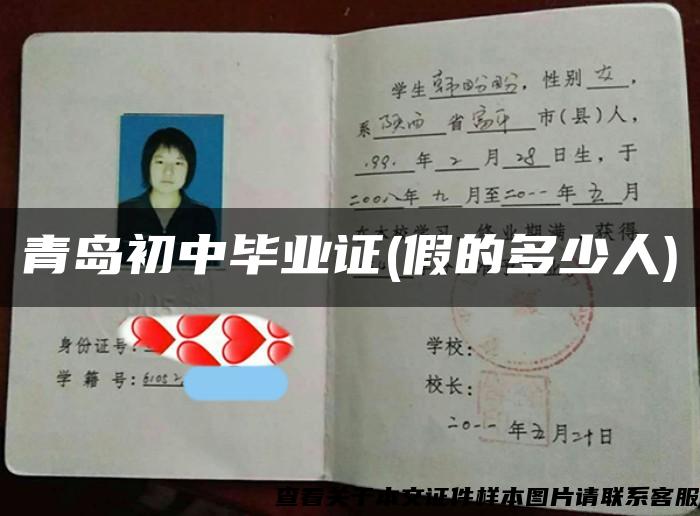 学生韩盼盼，性别女，
系陕西省富平市(县)人，
199.年2月28日生，于
二〇〇八年九月至二〇一一年五月
在本校学习，修业期满，获得
青岛初中毕业证(假的多少人)
身份证号：
学籍号：6105
学校：
校长：
二〇一一年五月二十日
查看关于本文证件样本图片请联系客服